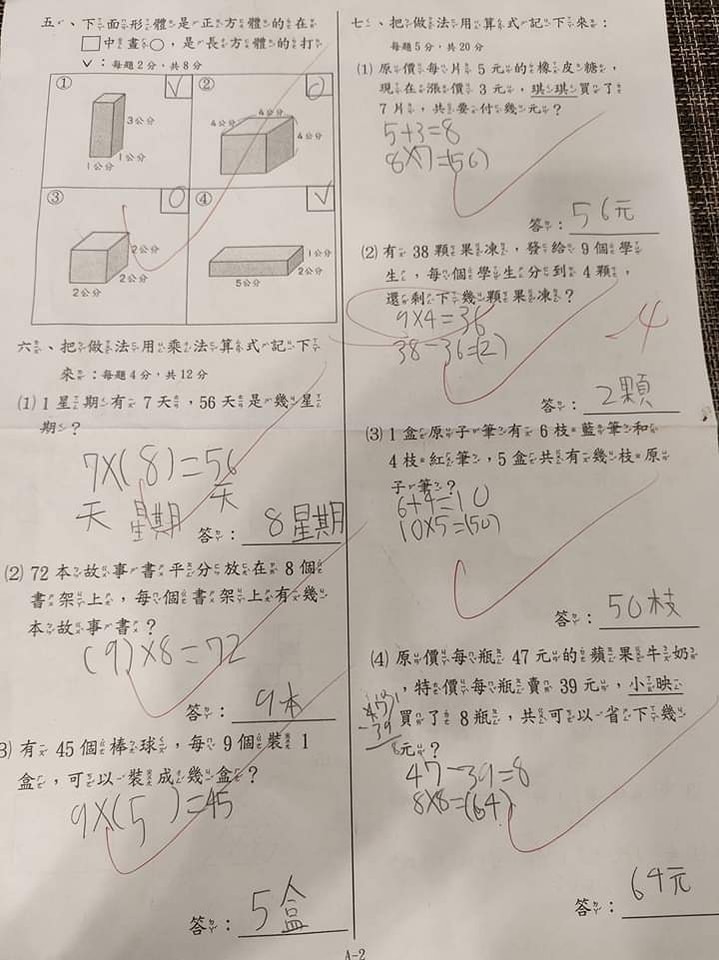 五、下面形體是正方體的在
□中畫○，是長方體的打
ˇ：每題2分，共8分
① ˇ
3公分
1公分
1公分
② ○
4公分
4公分
4公分
③ ○
2公分
2公分
2公分
④ ˇ
1公分
2公分
5公分
六、把做法用乘法算式記下
來：每題4分，共12分
(1) 1星期有7天，56天是幾星
期？
7×(8)=56
天 星期 天
答：8星期
(2) 72本故事書平分放在8個
書架上，每個書架上有幾
本故事書？
(9)×8=72
答：9本
3) 有45個棒球，每9個裝1
盒，可以裝成幾盒？
9×(5)=45
答：5盒
七、把做法用算式記下來：
每題5分，共20分
(1) 原價每片5元的橡皮糖，
現在漲價3元，琪琪買了
7片，共要付幾元？
5+3=8
8×7=(56)
答：56元
(2) 有38顆果凍，發給9個學
生，每個學生分到4顆，
還剩下幾顆果凍？
9×4=36
38-36=(2)
-4
答：2顆
(3) 1盒原子筆有6枝藍筆和
4枝紅筆，5盒共有幾枝原
子筆？
6+4=10
10×5=(50)
答：50枝
(4) 原價每瓶47元的蘋果牛奶
，特價每瓶賣39元，小映
買了8瓶，共可以省下幾
元？
-39
8
47-39=8
8×8=(64)
答：64元
A-2